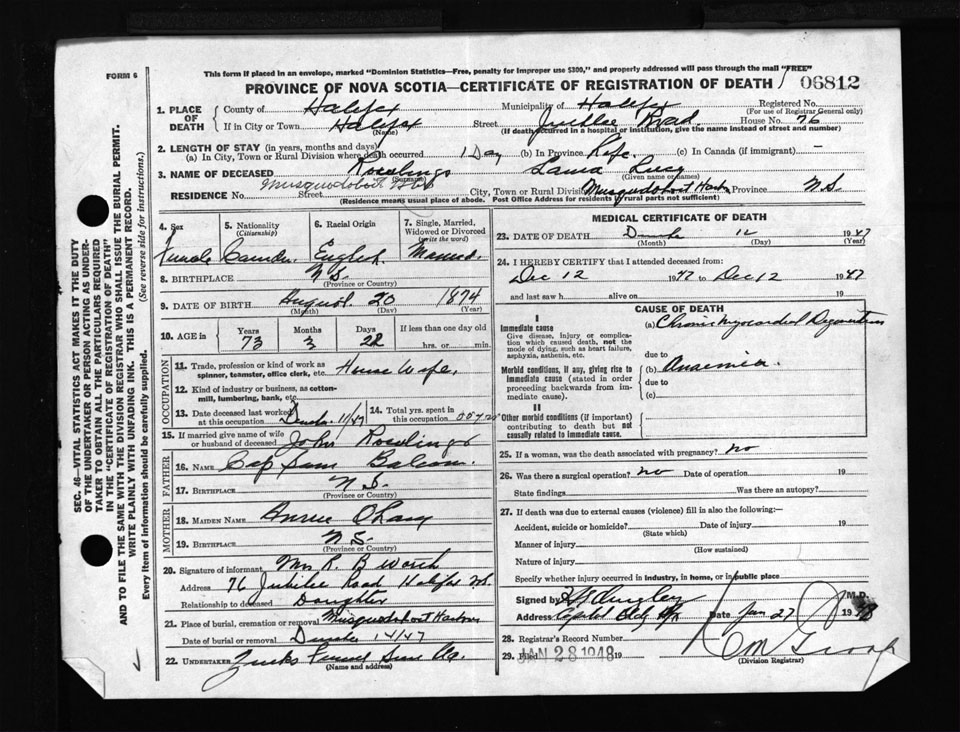 FORM 6
This form if placed in an envelope, marked "Dominion Statistics—Free, penalty for improper use $300," and properly addressed will pass through the mail "FREE"
PROVINCE OF NOVA SCOTIA—CERTIFICATE OF REGISTRATION OF DEATH 06812
1. PLACE OF DEATH
County of Halifax Municipality of Halifax Registered No.
(For use of Registrar General only)
If in City or Town Halifax Street Jubilee Road House No. 76
(Name) (If death occurred in a hospital or institution, give the name instead of street and number)
2. LENGTH OF STAY (in years, months and days)
(a) In City, Town or Rural Division where death occurred 1 Day (b) In Province Life (c) In Canada (if immigrant) -
3. NAME OF DECEASED Rowlings Laura Lucy
(Surname) (Given name or names)
RESIDENCE No. Street Musquodoboit Hbr City, Town or Rural Division Musquodoboit Harbor Province N.S.
(Residence means usual place of abode. Post Office Address for residents in rural parts not sufficient)
4. Sex Female
5. Nationality (Citizenship)
6. Racial Origin English
7. Single, Married, Widowed or Divorced (write the word) Married.
8. BIRTHPLACE N.S.
(Province or Country)
9. DATE OF BIRTH August 20 1874
(Month) (Day) (Year)
10. AGE in Years 73 Months 3 Days 22 If less than one day old hrs. or min.
OCCUPATION
11. Trade, profession or kind of work as spinner, teamster, office clerk, etc. House Wife.
12. Kind of industry or business, as cotton-mill, lumbering, bank, etc.
13. Date deceased last worked at this occupation 11/47
14. Total yrs. spent in this occupation
15. If married give name of wife or husband of deceased John Rowlings
FATHER
16. NAME Cap Sam Balcom.
17. BIRTHPLACE N S.
(Province or Country)
MOTHER
18. MAIDEN NAME Annie
19. BIRTHPLACE N S.
(Province or Country)
20. Signature of informant Mrs R. B Worth
Address 76 Jubilee Road Halifax N.S.
Relationship to deceased Daughter
21. Place of burial, cremation or removal Musquodoboit Harbour
Date of burial or removal 14/47
22. UNDERTAKER
(Name and address)
MEDICAL CERTIFICATE OF DEATH
23. DATE OF DEATH 12 1947
(Month) (Day) (Year)
24. I HEREBY CERTIFY that I attended deceased from:
Dec 12 1947 to Dec 12 1947
and last saw h alive on 19
CAUSE OF DEATH
I
Immediate cause
Give disease, injury or complication which caused death, not the mode of dying, such as heart failure, asphyxia, asthenia, etc.
(a) Chronic Myocardial Degeneration
due to
Morbid conditions, if any, giving rise to immediate cause (stated in order proceeding backwards from immediate cause).
(b) Anaemia.
due to
(c)
II
Other morbid conditions (if important) contributing to death but not causally related to immediate cause.
25. If a woman, was the death associated with pregnancy? no
26. Was there a surgical operation? no Date of operation 19
State findings Was there an autopsy?
27. If death was due to external causes (violence) fill in also the following:—
Accident, suicide or homicide? Date of injury 19
(State which)
Manner of injury
(How sustained)
Nature of injury
Specify whether injury occurred in industry, in home, or in public place
Signed by M.D.
Address Capitol Bldg Hfx Date Jan 27 1948
28. Registrar's Record Number
29. Filed JAN 28 1948 19
(Division Registrar)
SEC. 46—VITAL STATISTICS ACT MAKES IT THE DUTY
OF THE UNDERTAKER OR PERSON ACTING AS UNDER-
TAKER TO OBTAIN ALL THE PARTICULARS REQUIRED
IN THE "CERTIFICATE OF REGISTRATION OF DEATH"
AND TO FILE THE SAME WITH THE DIVISION REGISTRAR WHO SHALL ISSUE THE BURIAL PERMIT.
WRITE PLAINLY WITH UNFADING INK. THIS IS A PERMANENT RECORD.
Every item of information should be carefully supplied. (See reverse side for instructions.)